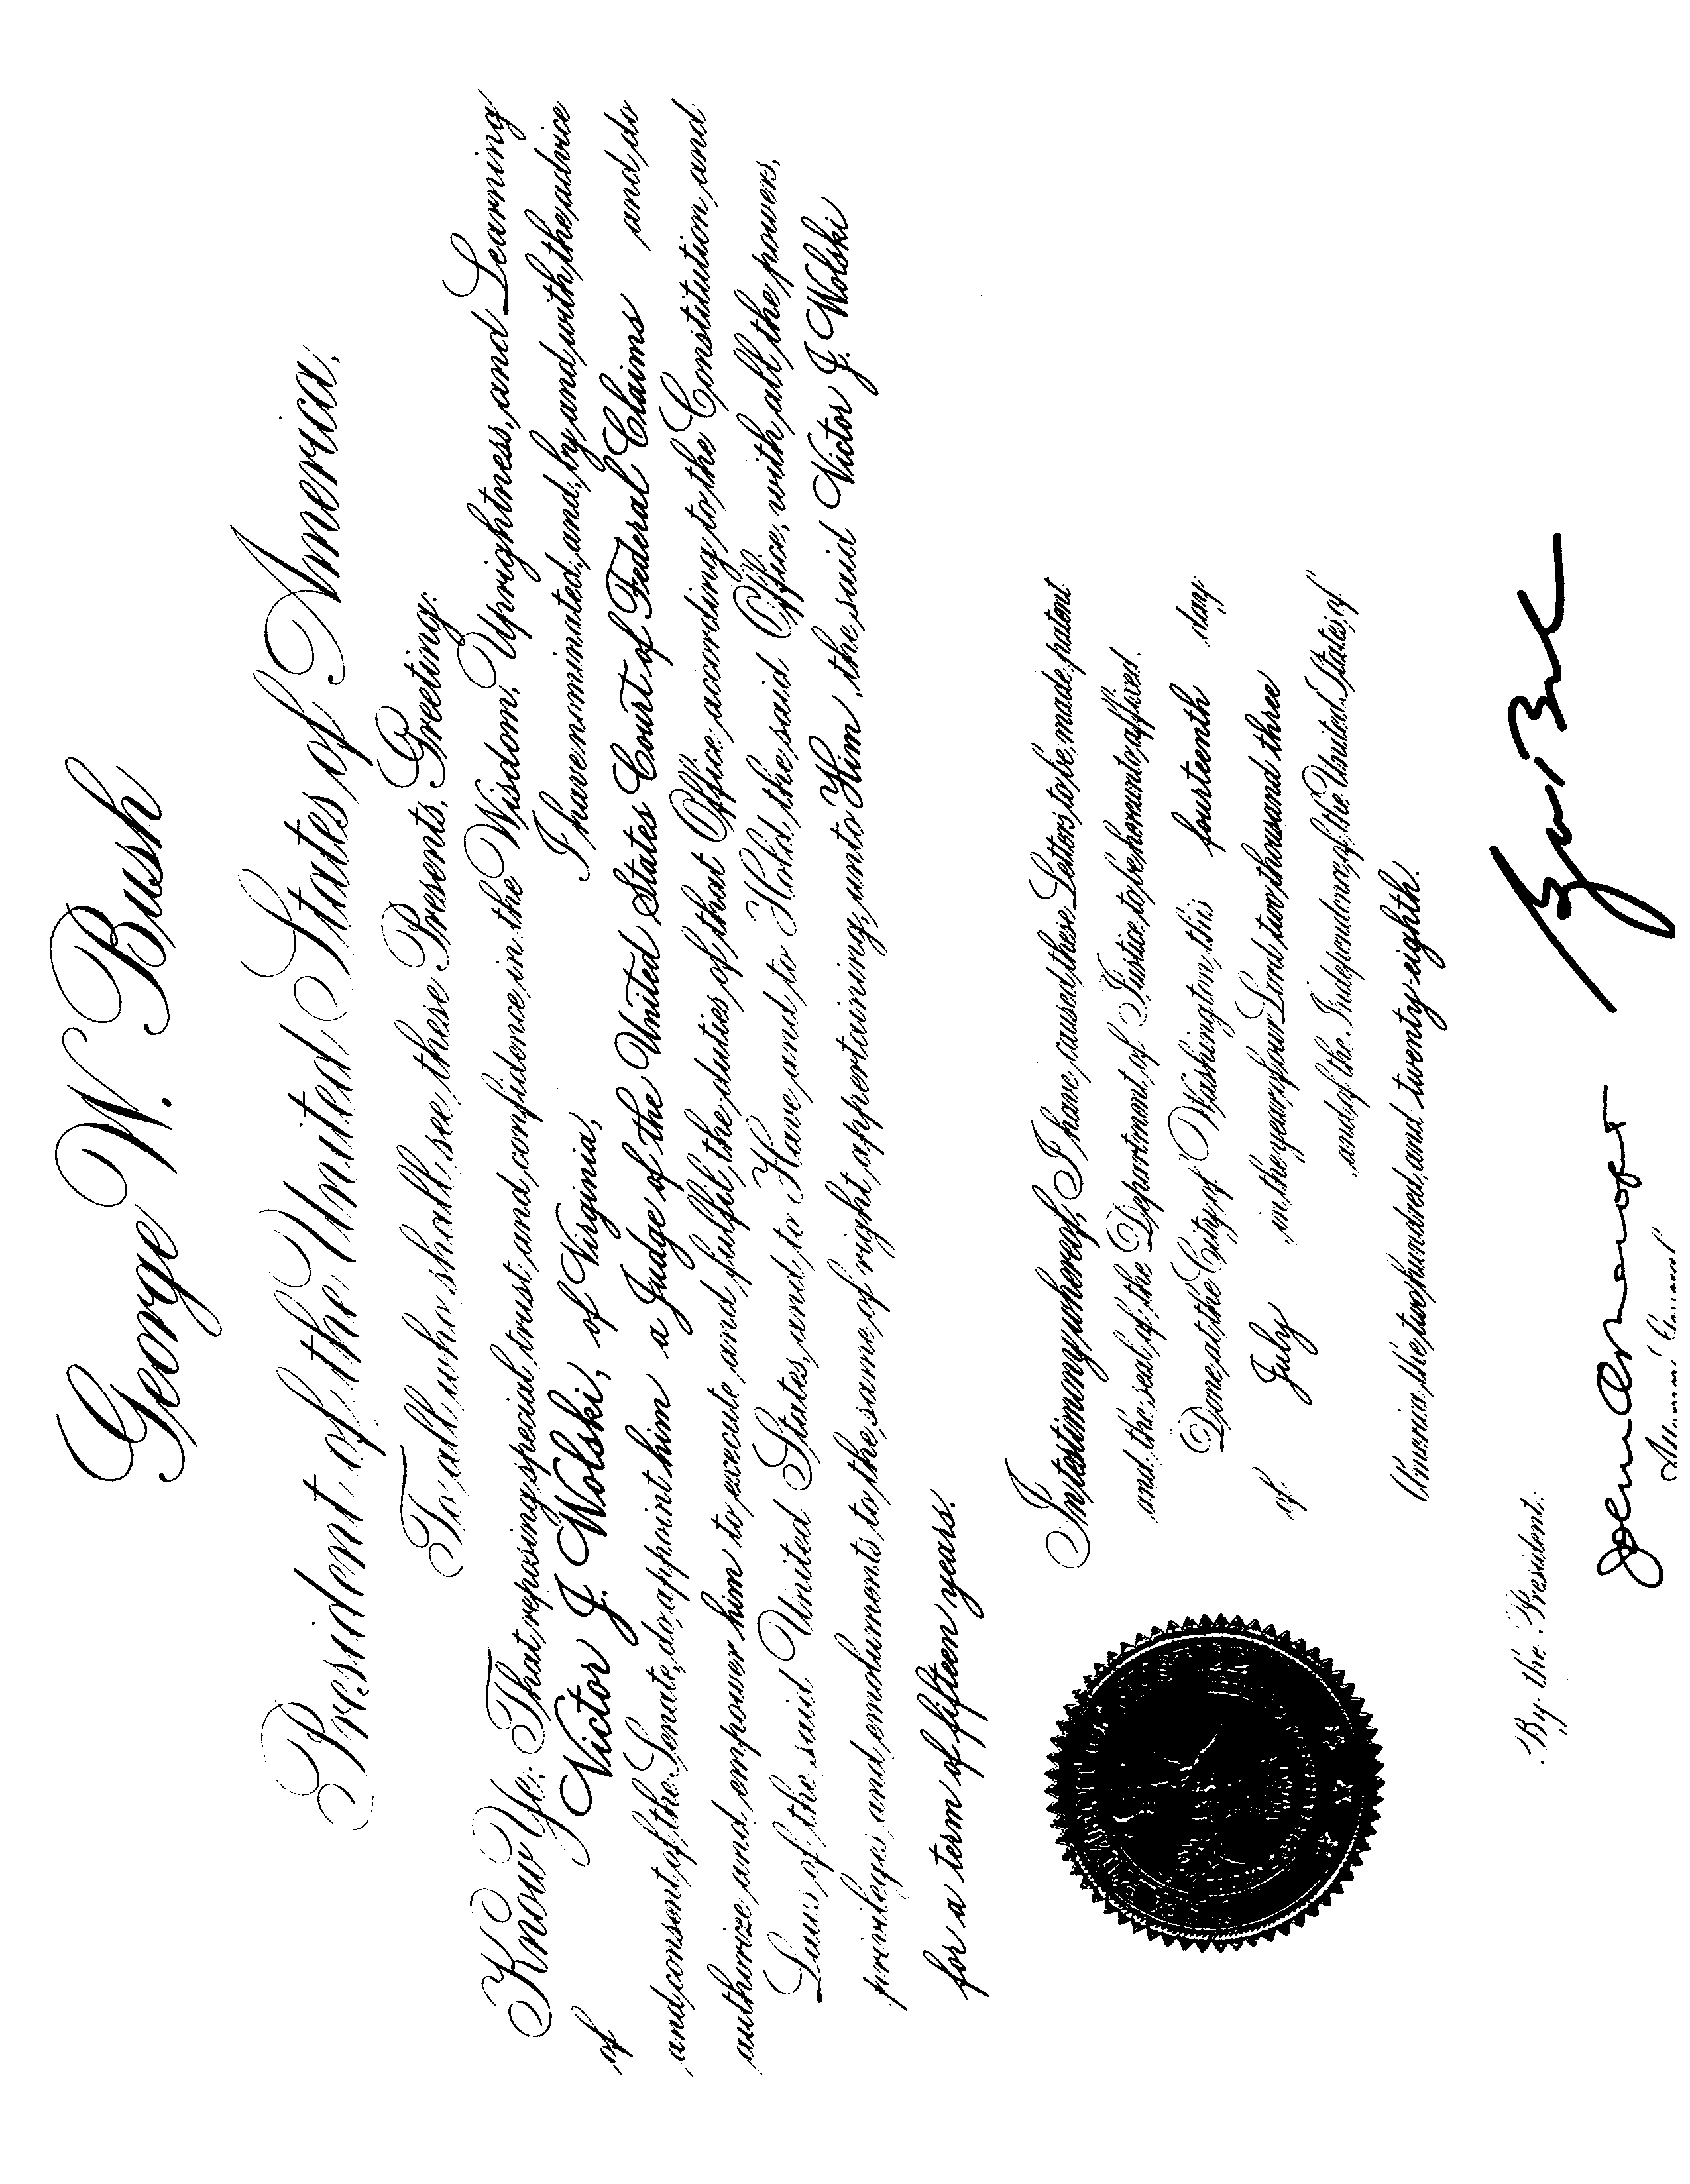 George W. Bush
President of the United States of America,
To all who shall see these Presents, Greeting:
Know Ye; That reposing special trust and confidence in the Wisdom, Uprightness, and Learning
of Victor J. Wolski, of Virginia, I have nominated, and, by and with the advice
and consent of the Senate, do appoint him a Judge of the United States Court of Federal Claims and do
authorize and empower him to execute and fulfil the duties of that Office according to the Constitution and
Laws of the said United States, and to Have and to Hold the said Office, with all the powers,
privileges and emoluments to the same of right appertaining, unto Him the said Victor J. Wolski
for a term of fifteen years.
In testimony whereof, I have caused these Letters to be made patent
and the seal of the Department of Justice to be hereunto affixed.
Done at the City of Washington this fourteenth day
of July in the year of our Lord two thousand three
and of the Independence of the United States of
America the two hundred and twenty-eighth.
By the President:
Attorney General